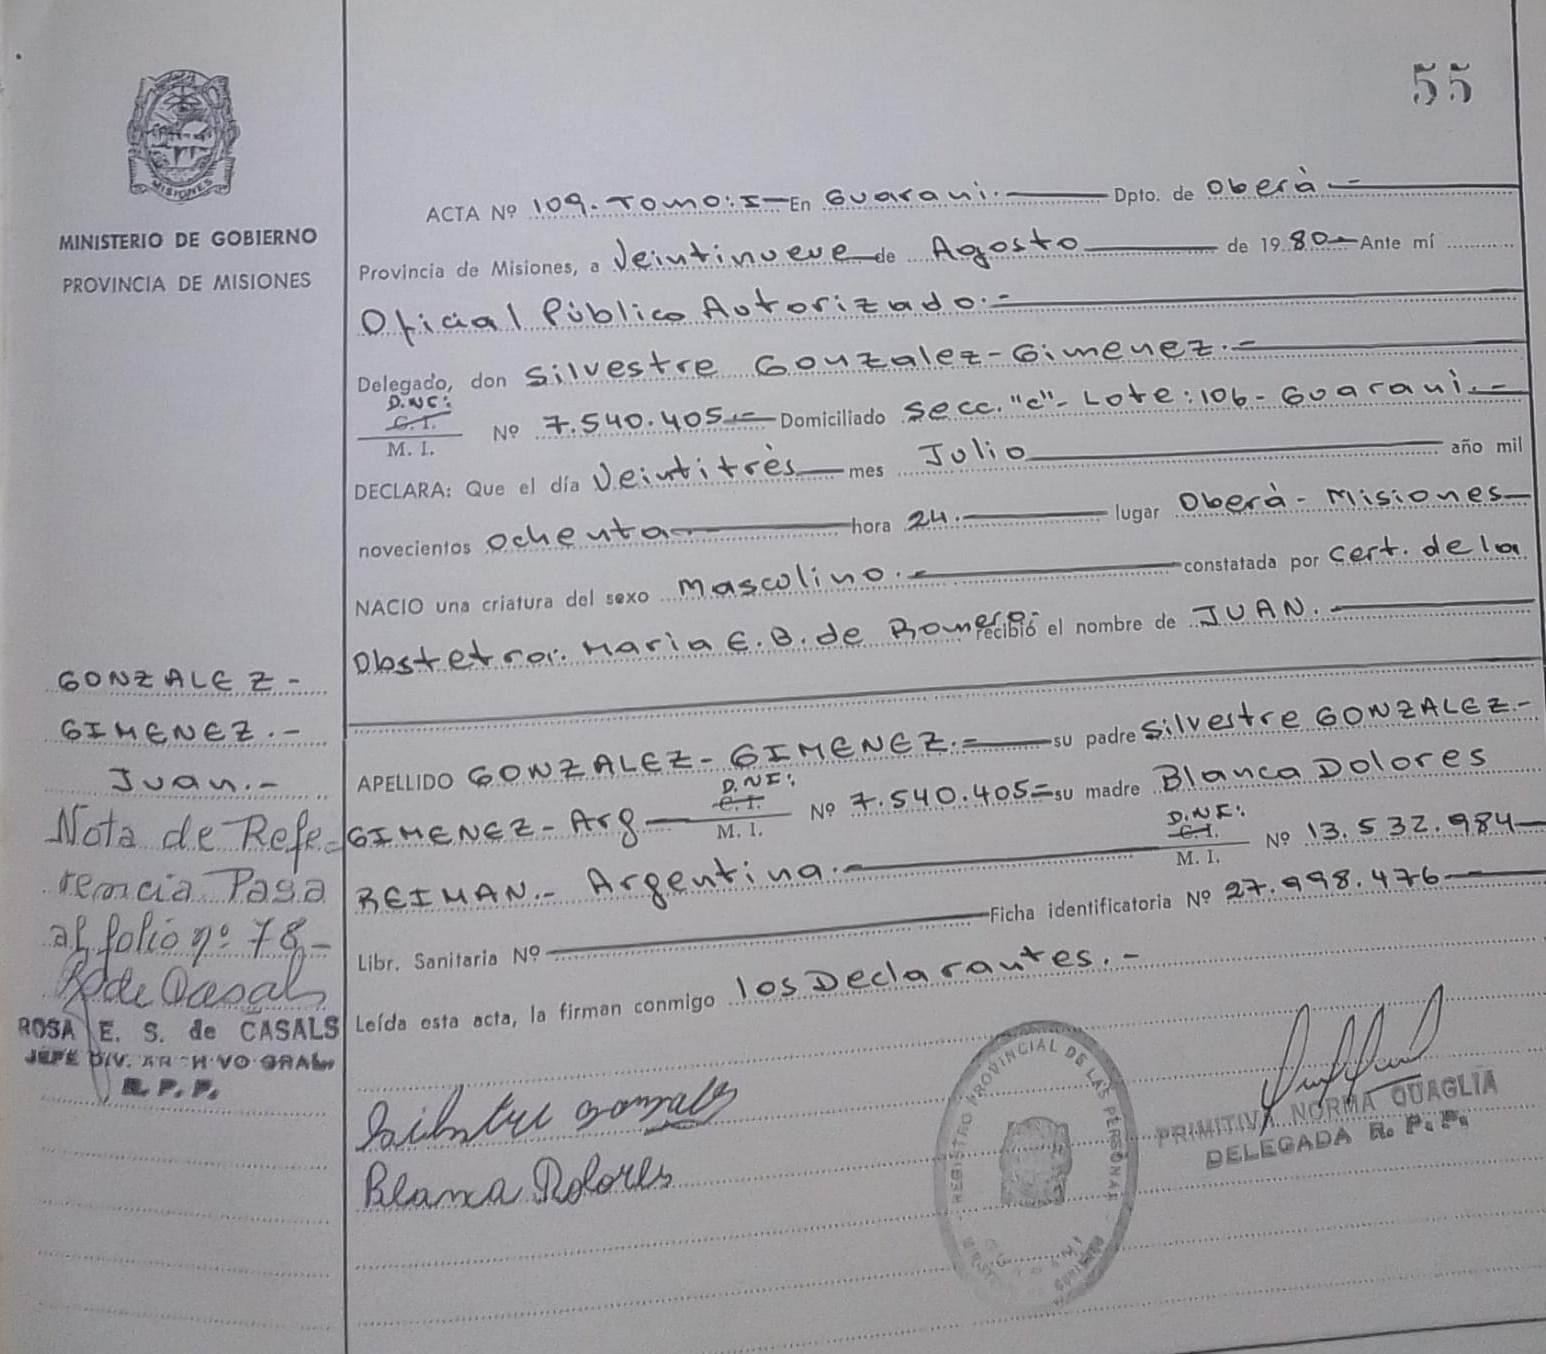 55
MISIONES
MINISTERIO DE GOBIERNO
PROVINCIA DE MISIONES
ACTA Nº 109.-Tomo:I- En Guarani.- Dpto. de Oberà.-
Provincia de Misiones, a Veintinueve de Agosto de 1980- Ante mí
Oficial Público Autorizado.-
Delegado, don Silvestre Gonzalez-Gimenez.-
D.N.I:
C. I.
M. I.
Nº 7.540.405.- Domiciliado Secc. "c"- Lote:106- Guarani.-
DECLARA: Que el día Veintitrès mes Julio año mil
novecientos ochenta hora 24.- lugar Oberà - Misiones-
NACIO una criatura del sexo Masculino.- constatada por Cert. de la
Obstetra: Maria E.B. de Romero.- recibió el nombre de JUAN.-
APELLIDO GONZALEZ- GIMENEZ.- su padre Silvestre GONZALEZ-
GIMENEZ- Arg-
D.NI:
C. I.
M. I.
Nº 7.540.405= su madre Blanca Dolores
REIMAN.- Argentina.-
D.NI:
C. I.
M. I.
Nº 13.532.984-
Libr. Sanitaria Nº Ficha identificatoria Nº 27.998.476-
Leída esta acta, la firman conmigo los Declarantes.-
GONZALEZ-
GIMENEZ.-
Juan.-
Nota de Refe-
rencia Pasa
al folio nº 78-
R de Casals
ROSA E. S. de CASALS
JEFE DIV. ARCHIVO GRAL.
R. P. P.
Silvestre Gonzalez
Blanca Dolores
REGISTRO PROVINCIAL DE LAS PERSONAS
PRIMITIVA NORMA QUAGLIA
DELEGADA R. P. P.